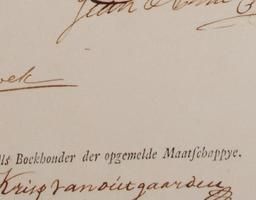 Jean
oek
lls Boekhouder der opgemelde Maatſchappye.
Krisp van outgaarden